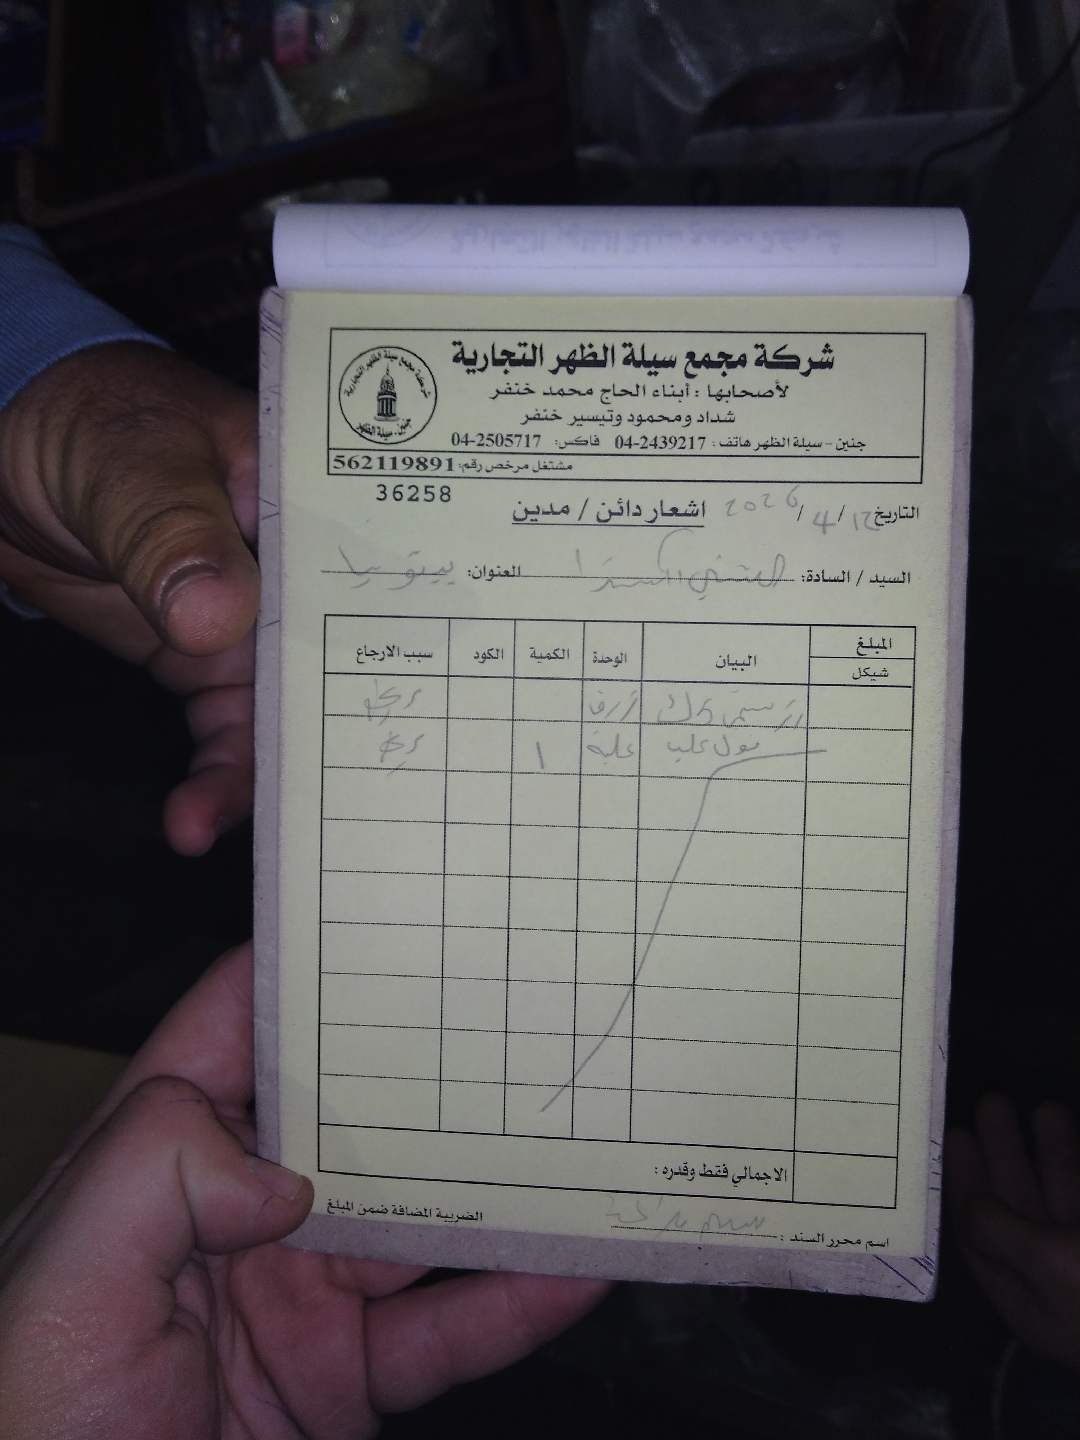 شركة مجمع سيلة الظهر التجارية
لأصحابها : أبناء الحاج محمد خنفر
شداد ومحمود وتيسير خنفر
جنين - سيلة الظهر هاتف : 04-2439217 فاكس: 04-2505717
مشتغل مرخص رقم: 562119891
شركة مجمع سيلة الظهر التجارية
جنين - سيلة الظهر
36258
التاريخ 12/4/2026 اشعار دائن / مدين
السيد / السادة: العنوان:
المبلغ البيان الوحدة الكمية الكود سبب الارجاع
شيكل
علبة 1
الاجمالي فقط وقدره :
الضريبة المضافة ضمن المبلغ
اسم محرر السند :